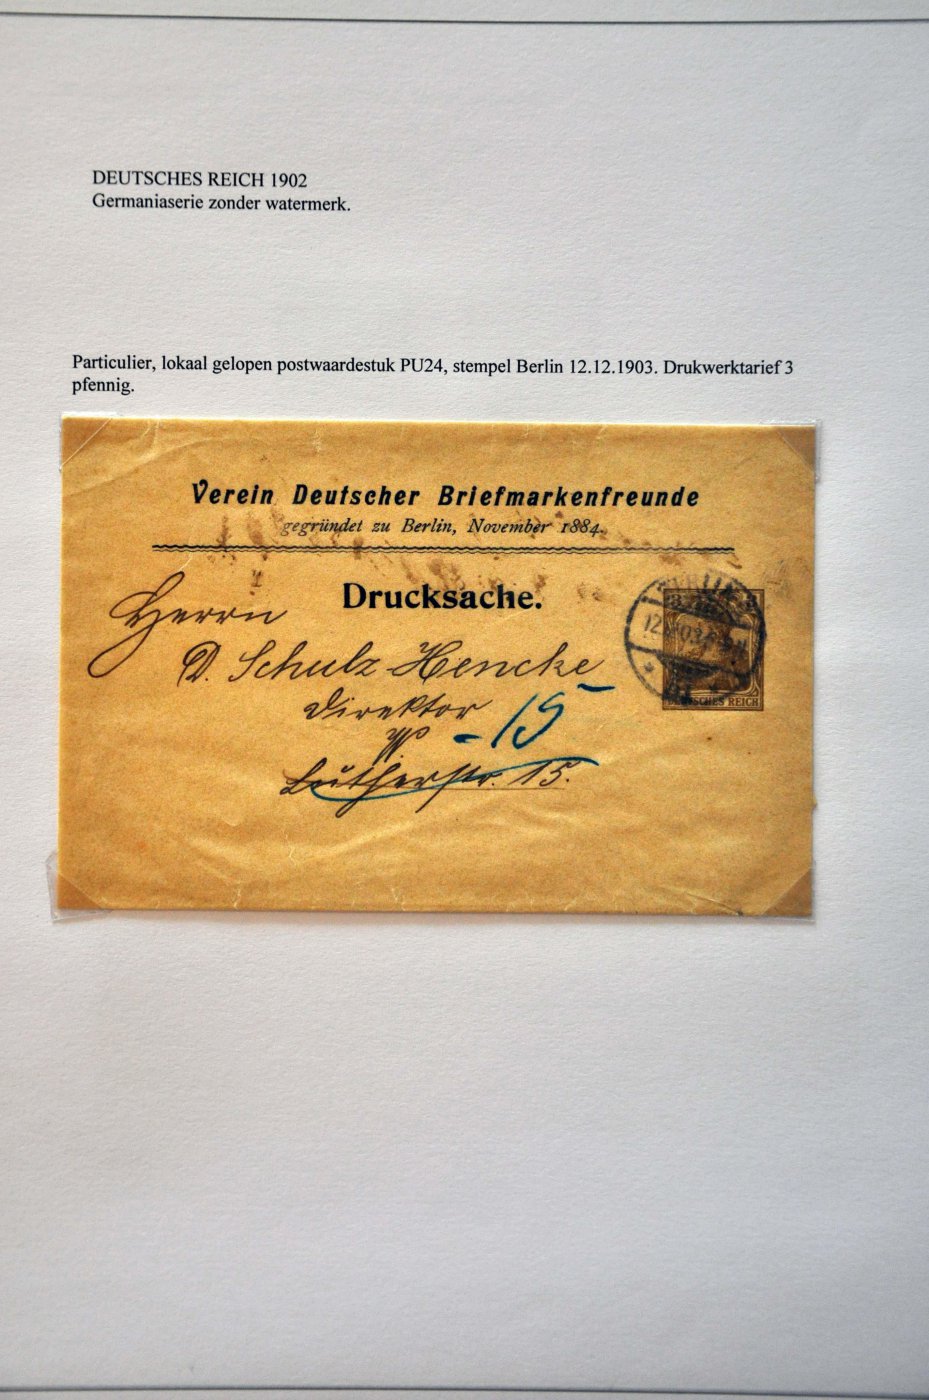 DEUTSCHES REICH 1902
Germaniaserie zonder watermerk.
Particulier, lokaal gelopen postwaardestuk PU24, stempel Berlin 12.12.1903. Drukwerktarief 3
pfennig.
Verein Deutscher Briefmarkenfreunde
gegründet zu Berlin, November 1884.
Drucksache.
Herrn
D. Schulz-Hencke
Direktor
W
- 15 -
Lutherstr. 15.
BERLIN
DEUTSCHES REICH